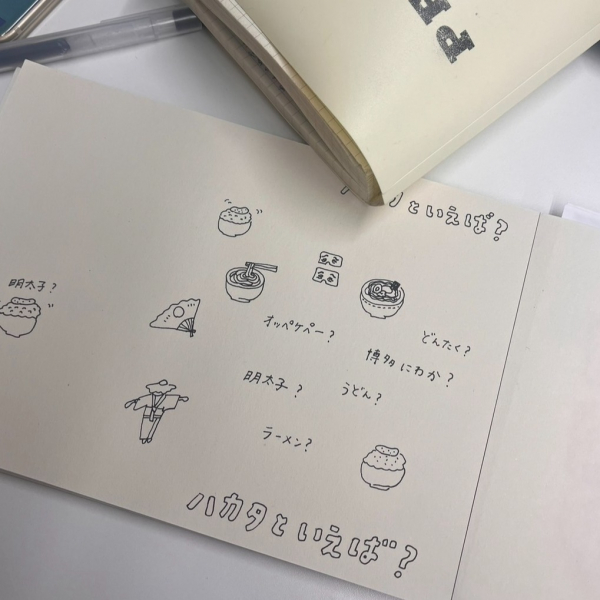 PE
といえば?
明太子?
オッペケペー?
どんたく?
博多にわか?
明太子?
うどん?
ラーメン?
ハカタといえば?